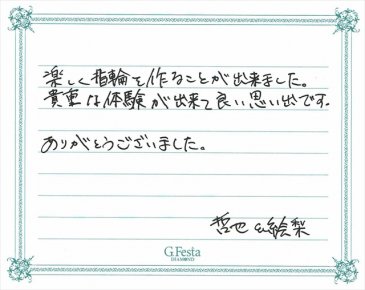 楽しく指輪を作ることが出来ました。
貴重な体験が出来て良い思い出です。
ありがとうございました。
哲也 & 絵梨
G.Festa
DIAMOND